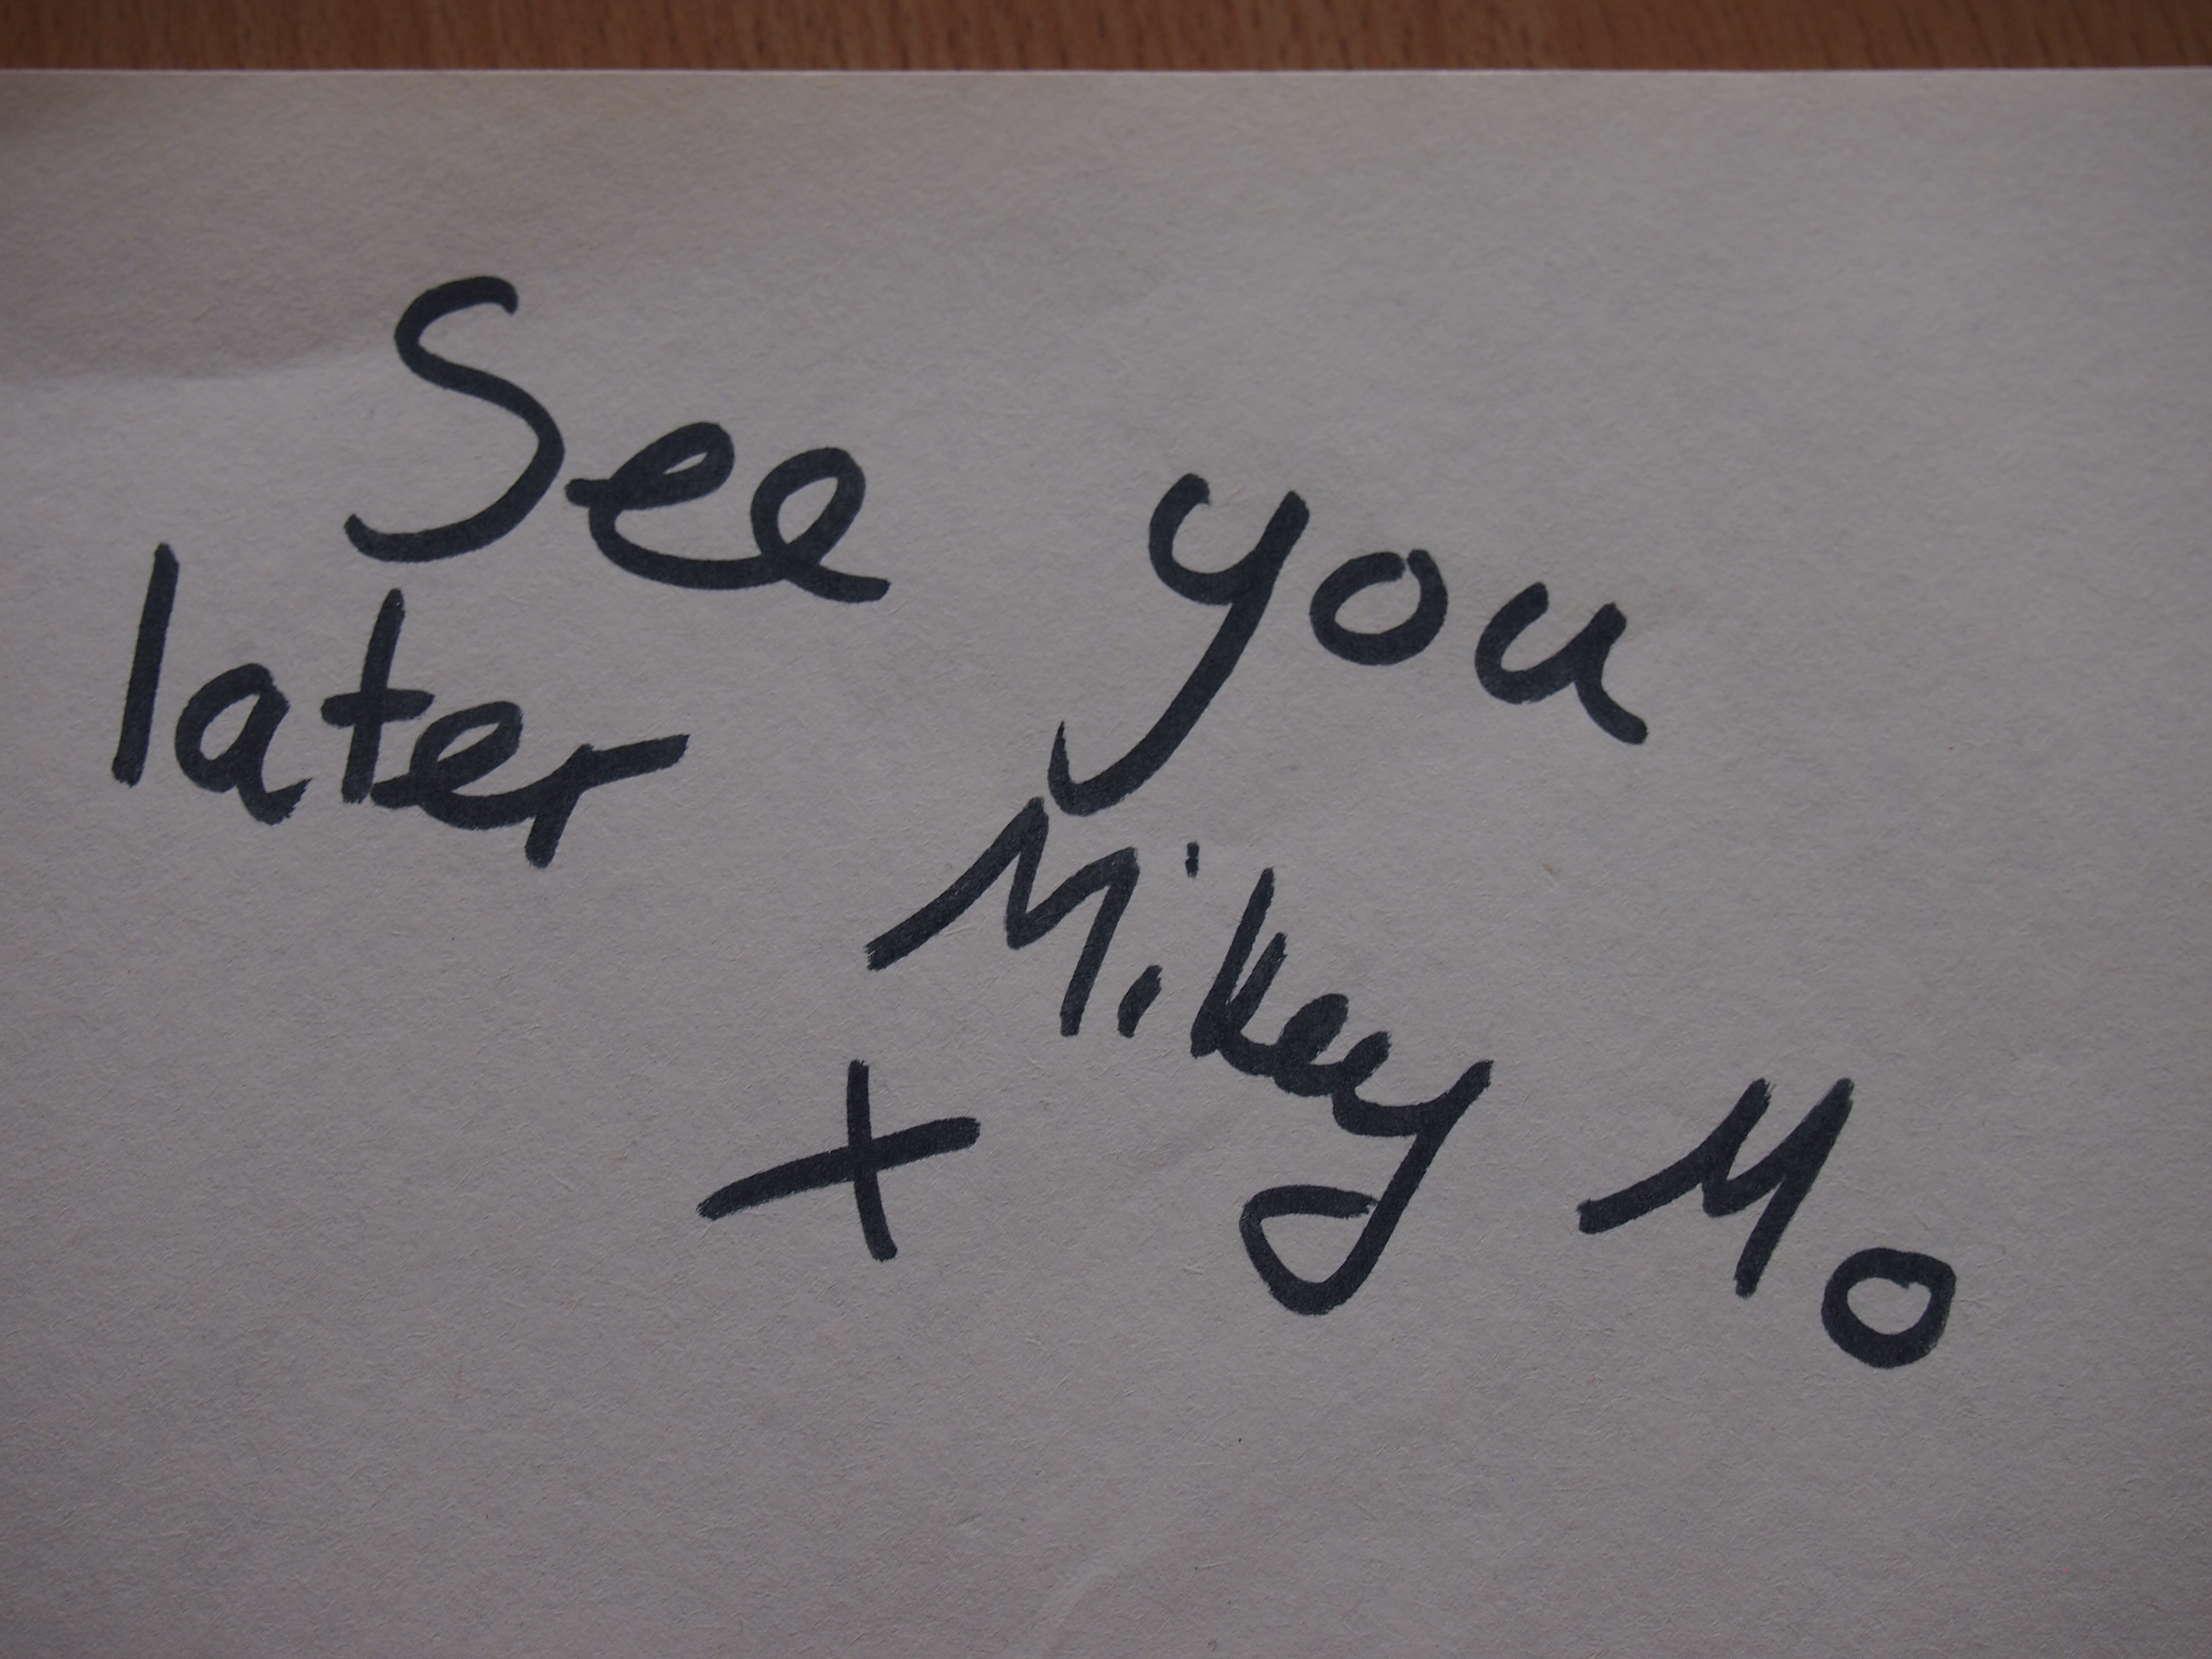 See you
later
Mikey Mo
x